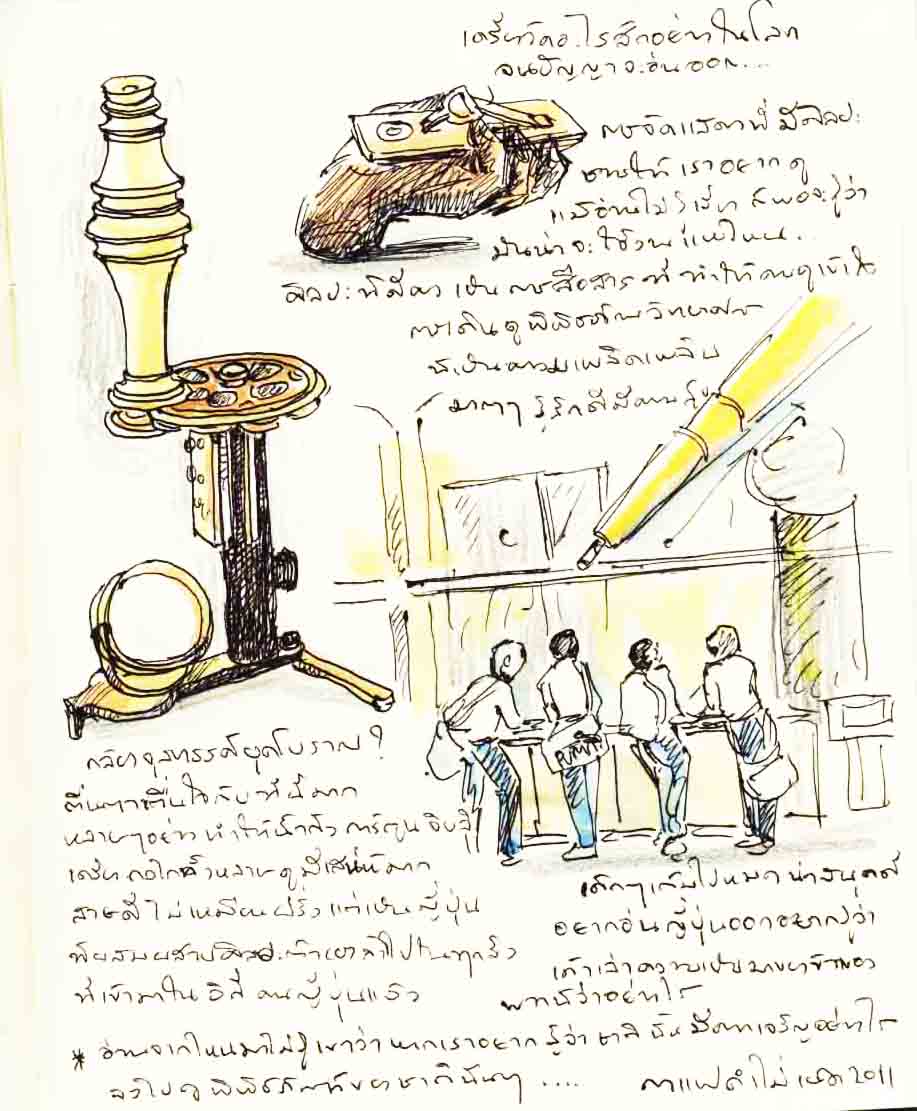 เครื่องวัดอะไรสักอย่างในโลก
จนปัญญาจะอ่านออก....
การจัดแสดงที่มีศิลปะ
ชวนให้เราอยากดู
แม้อ่านไม่รู้เรื่อง ก็พอจะรู้ว่า
มันน่าจะใช้งานแบบไหน...
ศิลปะที่ดี เป็นการสื่อสารที่ทำให้คนดูเข้าใจ
การเดินดูพิพิธภัณฑ์วิทยาศาสตร์
เป็นความเพลิดเพลิน
มากๆ รู้สึกดี
กล้องจุลทรรศน์ยุคโบราณ?
ตื่นตาตื่นใจกับที่นี่มาก
หลายๆอย่างทำให้นึกถึง การ์ตูน
เครื่องกลไกทั้งหลายดูมีเสน่ห์มาก
ไม่เหมือนฝรั่ง แต่เป็นญี่ปุ่น
ผสมผสานศิลปะ
ที่เข้ามาใน คนญี่ปุ่นแล้ว
เด็กๆ น่าสนุกดี
อยากอ่านญี่ปุ่นออก อยากรู้ว่า
เค้าเล่าความเป็นมาของข้าวของ
พวกนี้ว่าอย่างไร
PUMA
* อ่านจากไหนมาไม่รู้ เขาว่า หากเราอยากรู้ว่าชาตินั้นมีความเจริญอย่างไร
จงไปดูพิพิธภัณฑ์ของชาตินั้นๆ ....
กาแฟดำไม่เผ็ด 2011